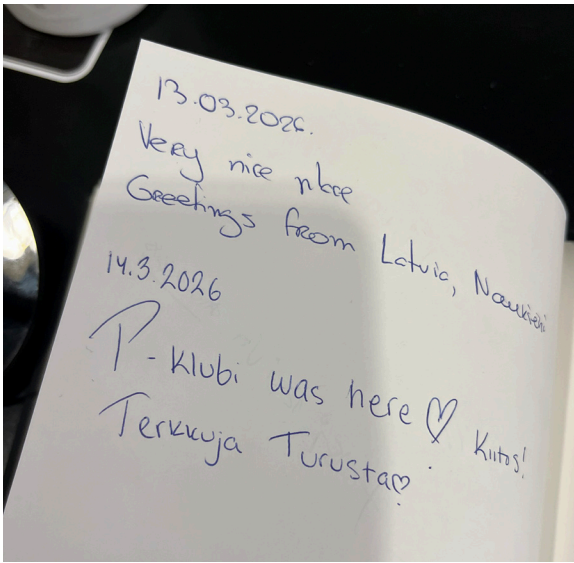 13.03.2026.
Very nice place
Greetings from Latvia,
14.3.2026
P-klubi was here ♡ Kiitos!
Terkkuja Turusta♡